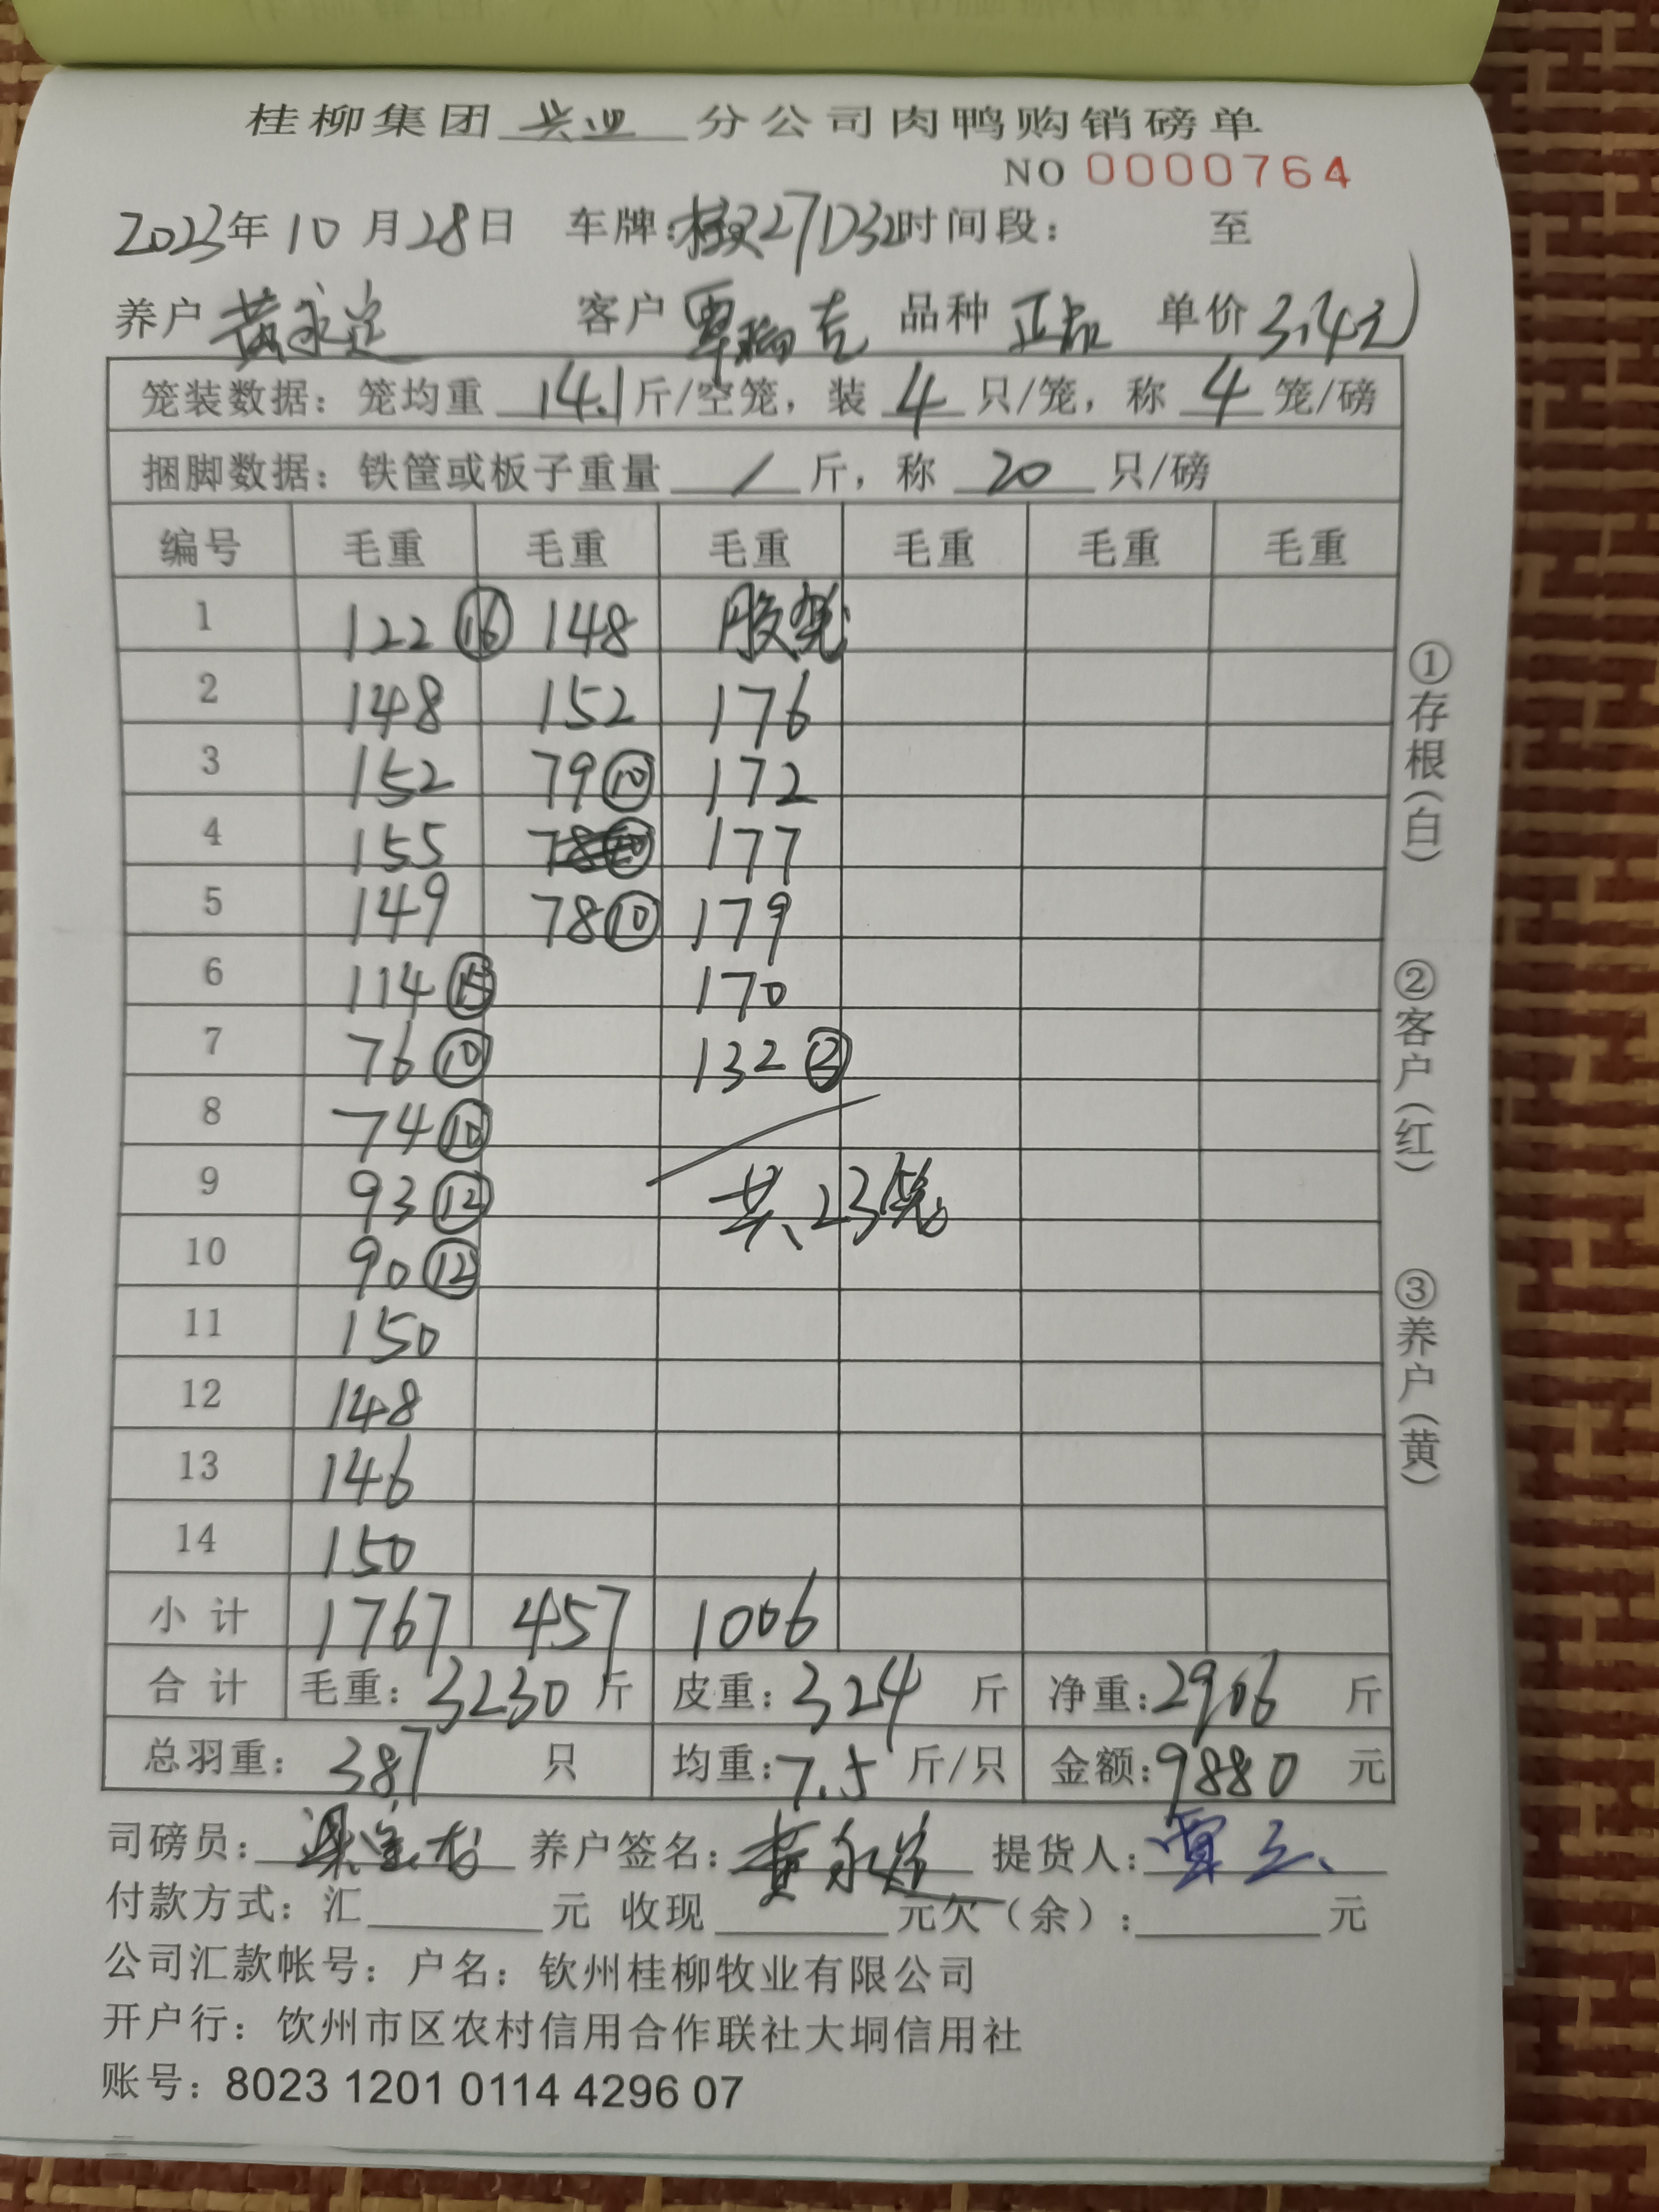 桂柳集团 兴业 分公司肉鸭购销磅单
NO 0000764
2023年 10 月 28 日 车牌:桂 27D32 时间段: 至
养户 黄永 客户 覃瑞 品种 正品 单价 3.4元
笼装数据: 笼均重 14.1 斤/空笼, 装 4 只/笼, 称 4 笼/磅
捆脚数据: 铁筐或板子重量 / 斤, 称 20 只/磅
编号 毛重 毛重 毛重 毛重 毛重 毛重
1 122 ⑯ 148 胶笼
2 148 152 176
3 152 79 ⑩ 172
4 155 177
5 149 78 ⑩ 179
6 114 ⑮ 170
7 76 ⑩ 132 ⑫
8 74 ⑩
9 93 ⑫ 共23笼
10 90 ⑫
11 150
12 148
13 146
14 150
小 计 1767 457 1006
合 计 毛重: 3230 斤 皮重: 324 斤 净重: 2906 斤
总羽重: 387 只 均重: 7.5 斤/只 金额: 9880 元
司磅员: 梁 养户签名: 黄永 提货人: 覃
付款方式: 汇 元 收现 元欠(余): 元
公司汇款帐号: 户名: 钦州桂柳牧业有限公司
开户行: 钦州市区农村信用合作联社大垌信用社
账号: 8023 1201 0114 4296 07
①存根(白)
②客户(红)
③养户(黄)